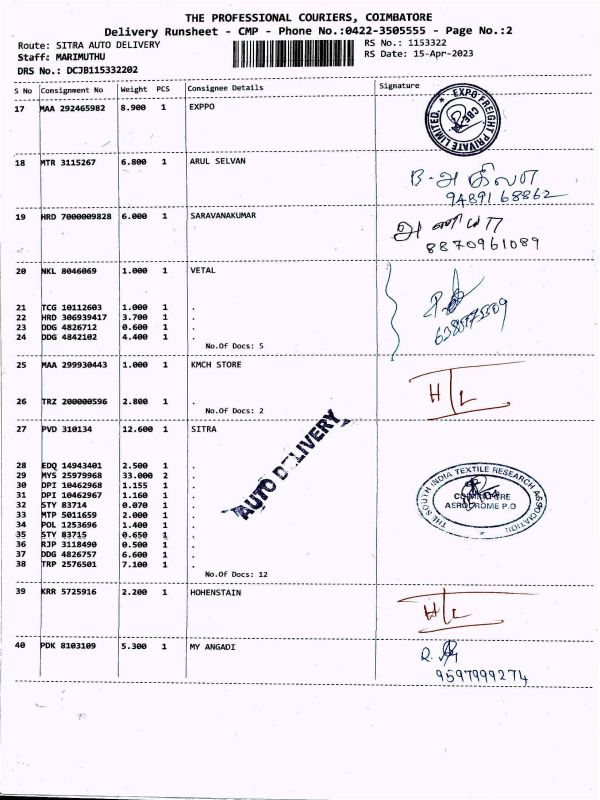 THE PROFESSIONAL COURIERS, COIMBATORE
Delivery Runsheet - CMP - Phone No.:0422-3505555 - Page No.:2
Route: SITRA AUTO DELIVERY
RS No.: 1153322
Staff: MARIMUTHU
RS Date: 15-Apr-2023
DRS No.: DCJB115332202
S No Consignment No Weight PCS Consignee Details Signature
17 MAA 292465982 8.900 1 EXPPO
EXPO FREIGHT PRIVATE LIMITED. * CBE
18 MTR 3115267 6.800 1 ARUL SELVAN
B- அகிலன்
9489168862
19 HRD 7000009828 6.000 1 SARAVANAKUMAR
8870961089
20 NKL 8046069 1.000 1 VETAL
21 TCG 10112603 1.000 1 .
22 HRD 306939417 3.700 1 .
23 DDG 4826712 0.600 1 .
24 DDG 4842102 4.400 1 .
No.Of Docs: 5
25 MAA 299930443 1.000 1 KMCH STORE
H/L
26 TRZ 200000596 2.800 1 .
No.Of Docs: 2
27 PVD 310134 12.600 1 SITRA
AUTO DELIVERY
28 EDQ 14943401 2.500 1 .
29 MYS 25979968 33.000 2 .
30 DPI 10462968 1.155 1 .
31 DPI 10462967 1.160 1 .
32 STY 83714 0.070 1 .
33 MTP 5011659 2.000 1 .
34 POL 1253696 1.400 1 .
35 STY 83715 0.650 1 .
36 RJP 3118490 0.500 1 .
37 DDG 4826757 6.600 1 .
38 TRP 2576501 7.100 1 .
No.Of Docs: 12
THE SOUTH INDIA TEXTILE RESEARCH ASSOCIATION
COIMBATORE
AERODROME P.O
39 KRR 5725916 2.200 1 HOHENSTAIN
H/L
40 PDK 8103109 5.300 1 MY ANGADI
9597999274